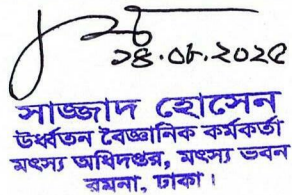 ২৪.০৮.২০২৫
সাজ্জাদ হোসেন
উর্ধ্বতন বৈজ্ঞানিক কর্মকর্তা
মৎস্য অধিদপ্তর, মৎস্য ভবন
রমনা, ঢাকা।